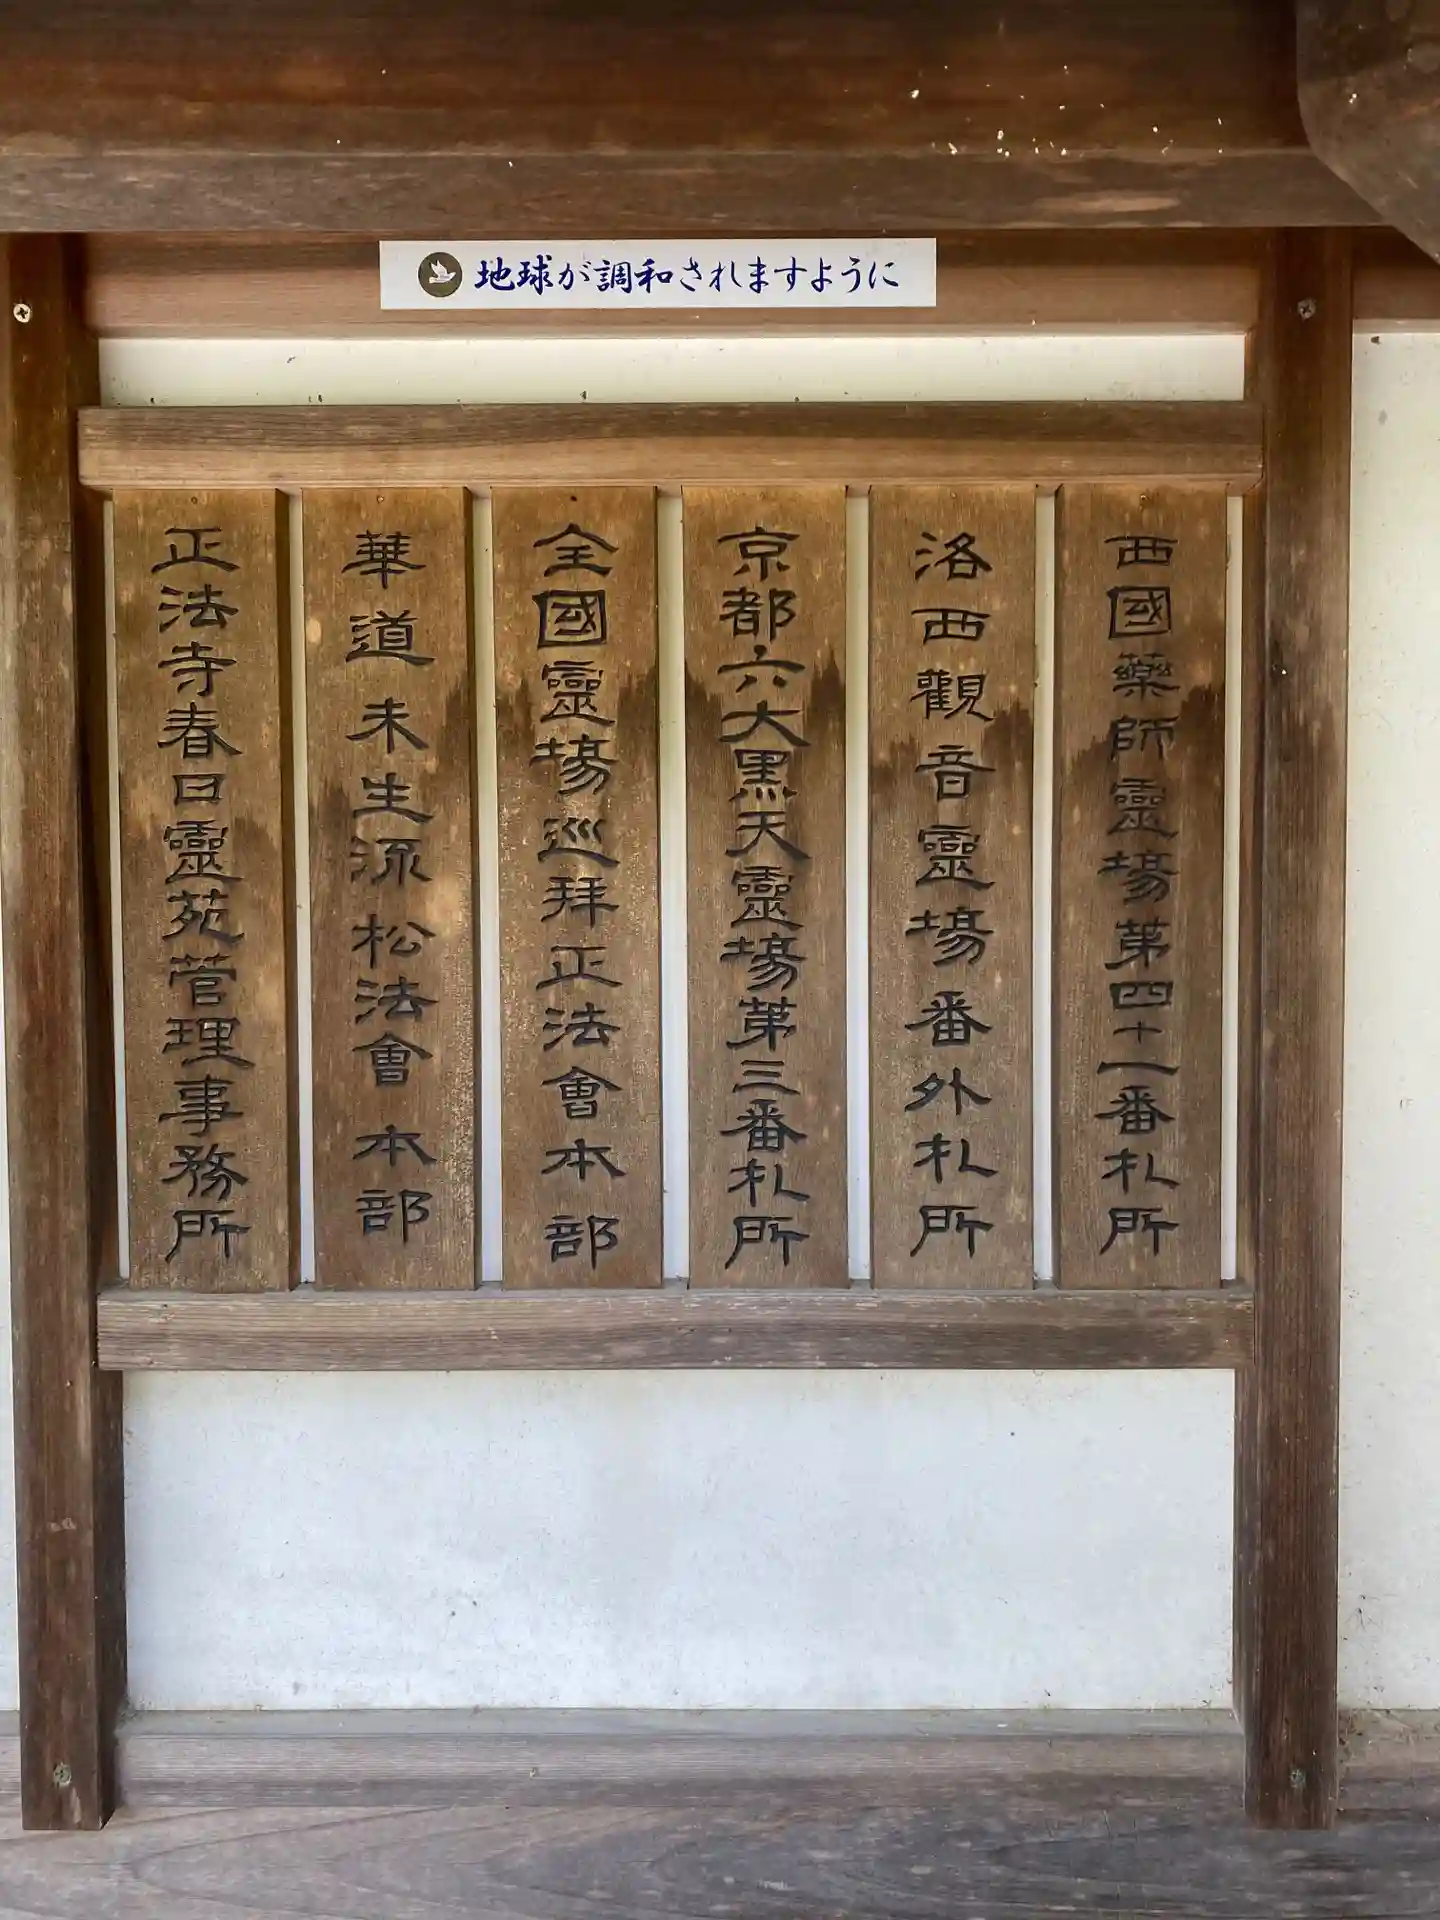 地球が調和されますように
西國藥師靈場第四十一番札所
洛西觀音靈場番外札所
京都六大黒天靈場第三番札所
全國靈場巡拜正法會本部
華道未生流松法會本部
正法寺春日靈苑管理事務所